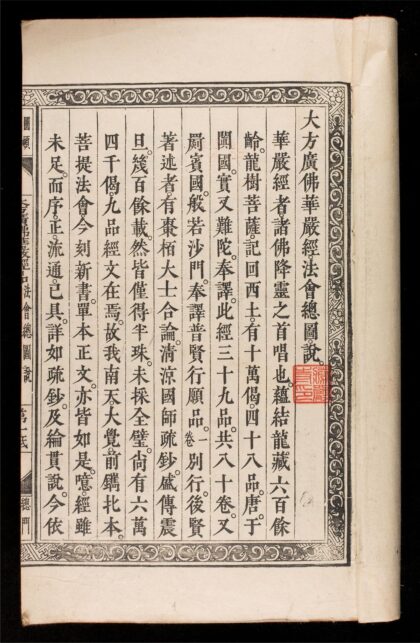 大方廣佛華嚴經法會總圖說
華嚴經者諸佛降靈之首唱也。蘊結龍藏六百餘
齡。龍樹菩薩記回西土。有十萬偈。四十八品。唐于
闐國。實叉難陀。奉譯。此經三十九品。共八十卷。又
罽賓國。般若沙門。奉譯普賢行願品。一卷別行後賢
著述者。有棗栢大士合論。清涼國師疏鈔。盛傳震
旦。幾百餘載。然皆僅得半珠。未採全璧。尙有六萬
四千偈。九品經文在焉。故我南天大覺。前鐫北本。
菩提法會。今刻新書。單本正文。亦皆如是。噫。經雖
未足。而序正流通。已具。詳如疏鈔。及綸貫說。今依
華嚴經 法會總圖說